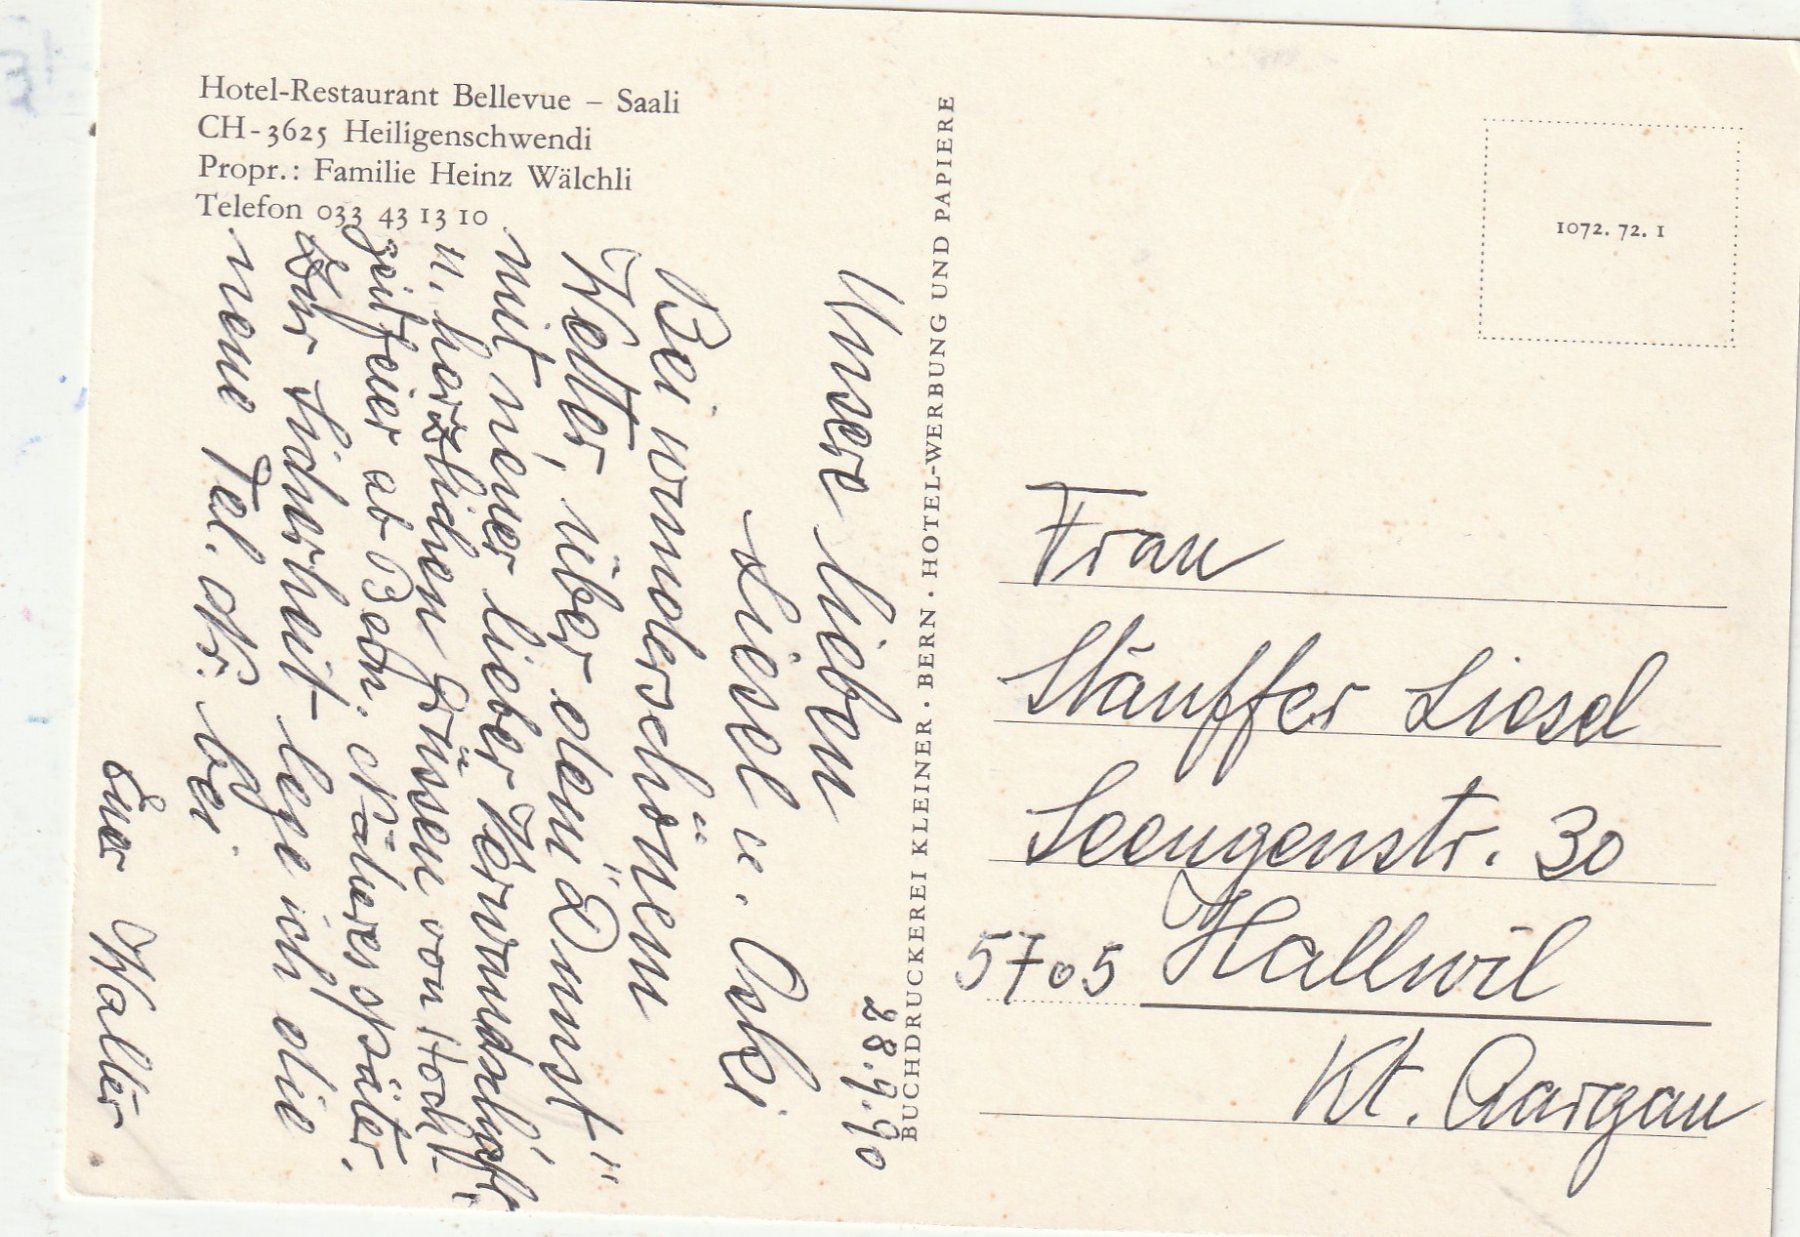 Hotel-Restaurant Bellevue – Saali
CH-3625 Heiligenschwendi
Propr.: Familie Heinz Wälchli
Telefon 033 43 13 10
28.9.90
Unsere lieben
Liesel u. Oski
Bei wunderschönem
Wetter, über dem "Dunst"
mit meiner lieber Verwandschaft
u. herzlichen Grüssen von Hoch-
zeitfeier ab Bern. Näheres später.
Zur Sicherheit lege ich die
neue Tel. Nr. bei
Euer Walter
BUCHDRUCKEREI KLEINER · BERN · HOTEL-WERBUNG UND PAPIERE
1072. 72. 1
Frau
Stäuffer Liesel
Seengenstr. 30
5705 Hallwil
Kt. Aargau